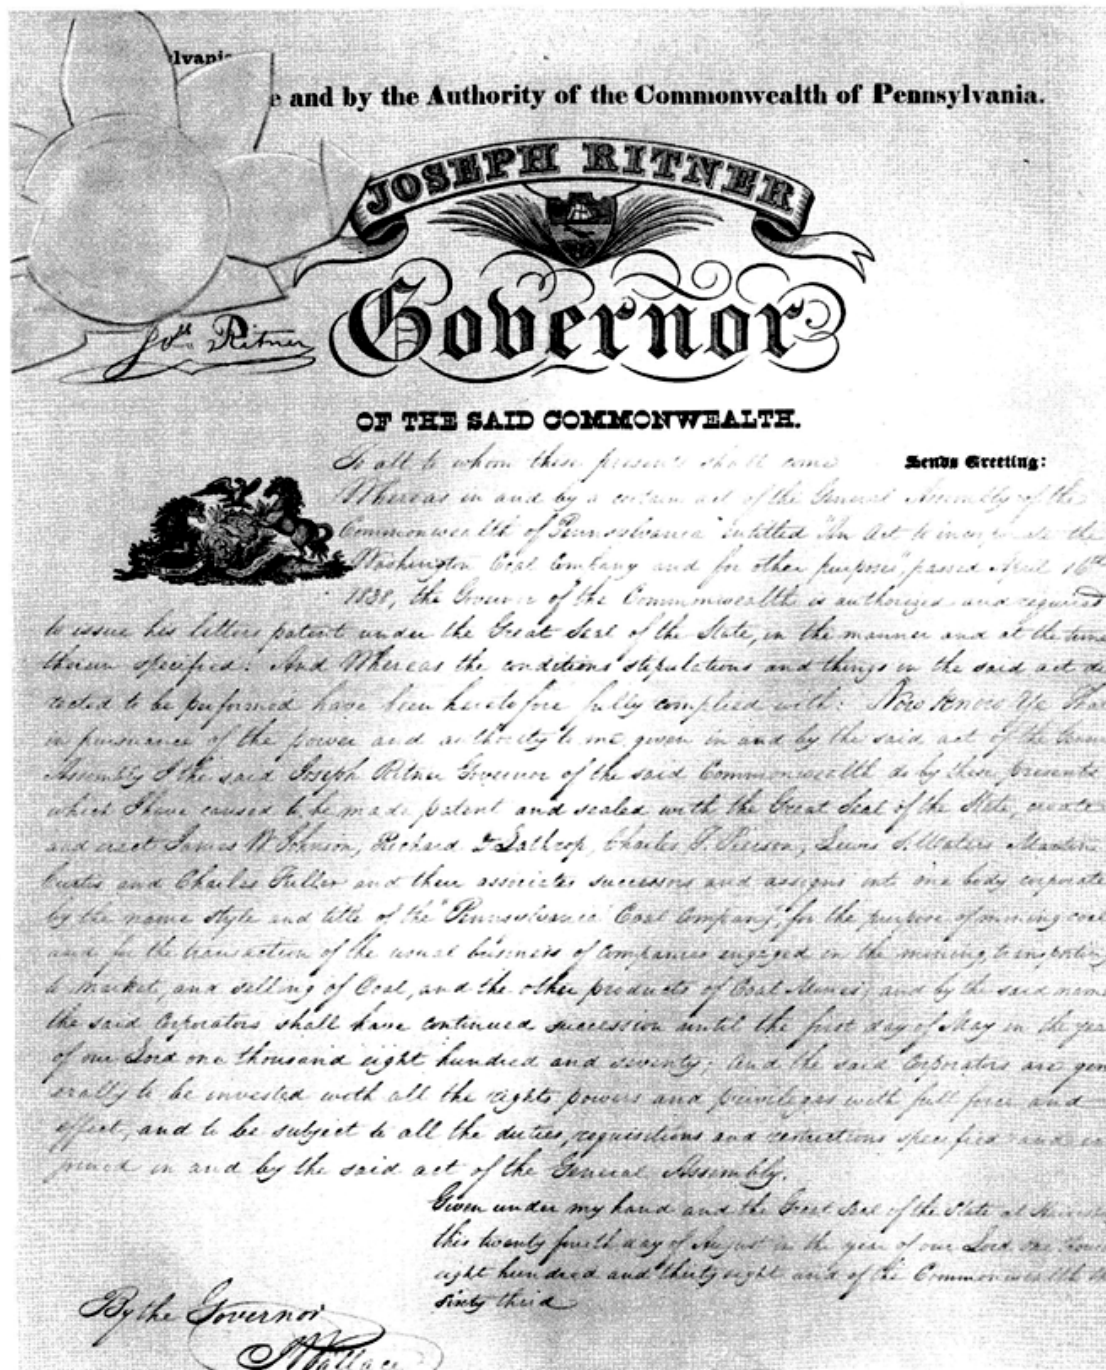 lvania
e and by the Authority of the Commonwealth of Pennsylvania.
JOSEPH RITNER
Jos. Ritner
Governor
OF THE SAID COMMONWEALTH.
To all to whom these presents shall come Sends Greeting:
Whereas in and by a certain act of the General Assembly of the
Commonwealth of Pennsylvania entitled "An Act to incorporate the
Washington Coal Company and for other purposes", passed April 16th
1838, the Governor of the Commonwealth is authorized and required
to issue his letters patent under the Great Seal of the State, in the manner and at the time
therein specified: And Whereas the conditions stipulations and things in the said act di
rected to be performed have been heretofore fully complied with: Now Know Ye That
in pursuance of the power and authority to me given in and by the said act of the
Assembly I the said Joseph Ritner Governor of the said Commonwealth do by these presents
which I have caused to be made patent and sealed with the Great Seal of the State, create
and erect James W Johnson, Richard D Lathrop, Charles F. Pierson, Lewis S. Waters
Curtis and Charles Fuller and their associates successors and assigns into one body corporate
by the name style and title of the "Pennsylvania Coal Company", for the purpose of mining coal
and for the transaction of the usual business of companies engaged in the mining, transporting
to market, and selling of Coal, and the other products of Coal Mines; and by the said name
the said Corporators shall have continued succession until the first day of May in the year
of our Lord one thousand eight hundred and seventy; and the said Corporators are gen
erally to be invested with all the rights powers and privileges with full force and
effect, and to be subject to all the duties, requisitions and restrictions specified and en
joined in and by the said act of the General Assembly.
Given under my hand and the Great Seal of the State at
this twenty fourth day of August in the year of our Lord one
eight hundred and thirty eight and of the Commonwealth the
sixty third
By the Governor
Wallace